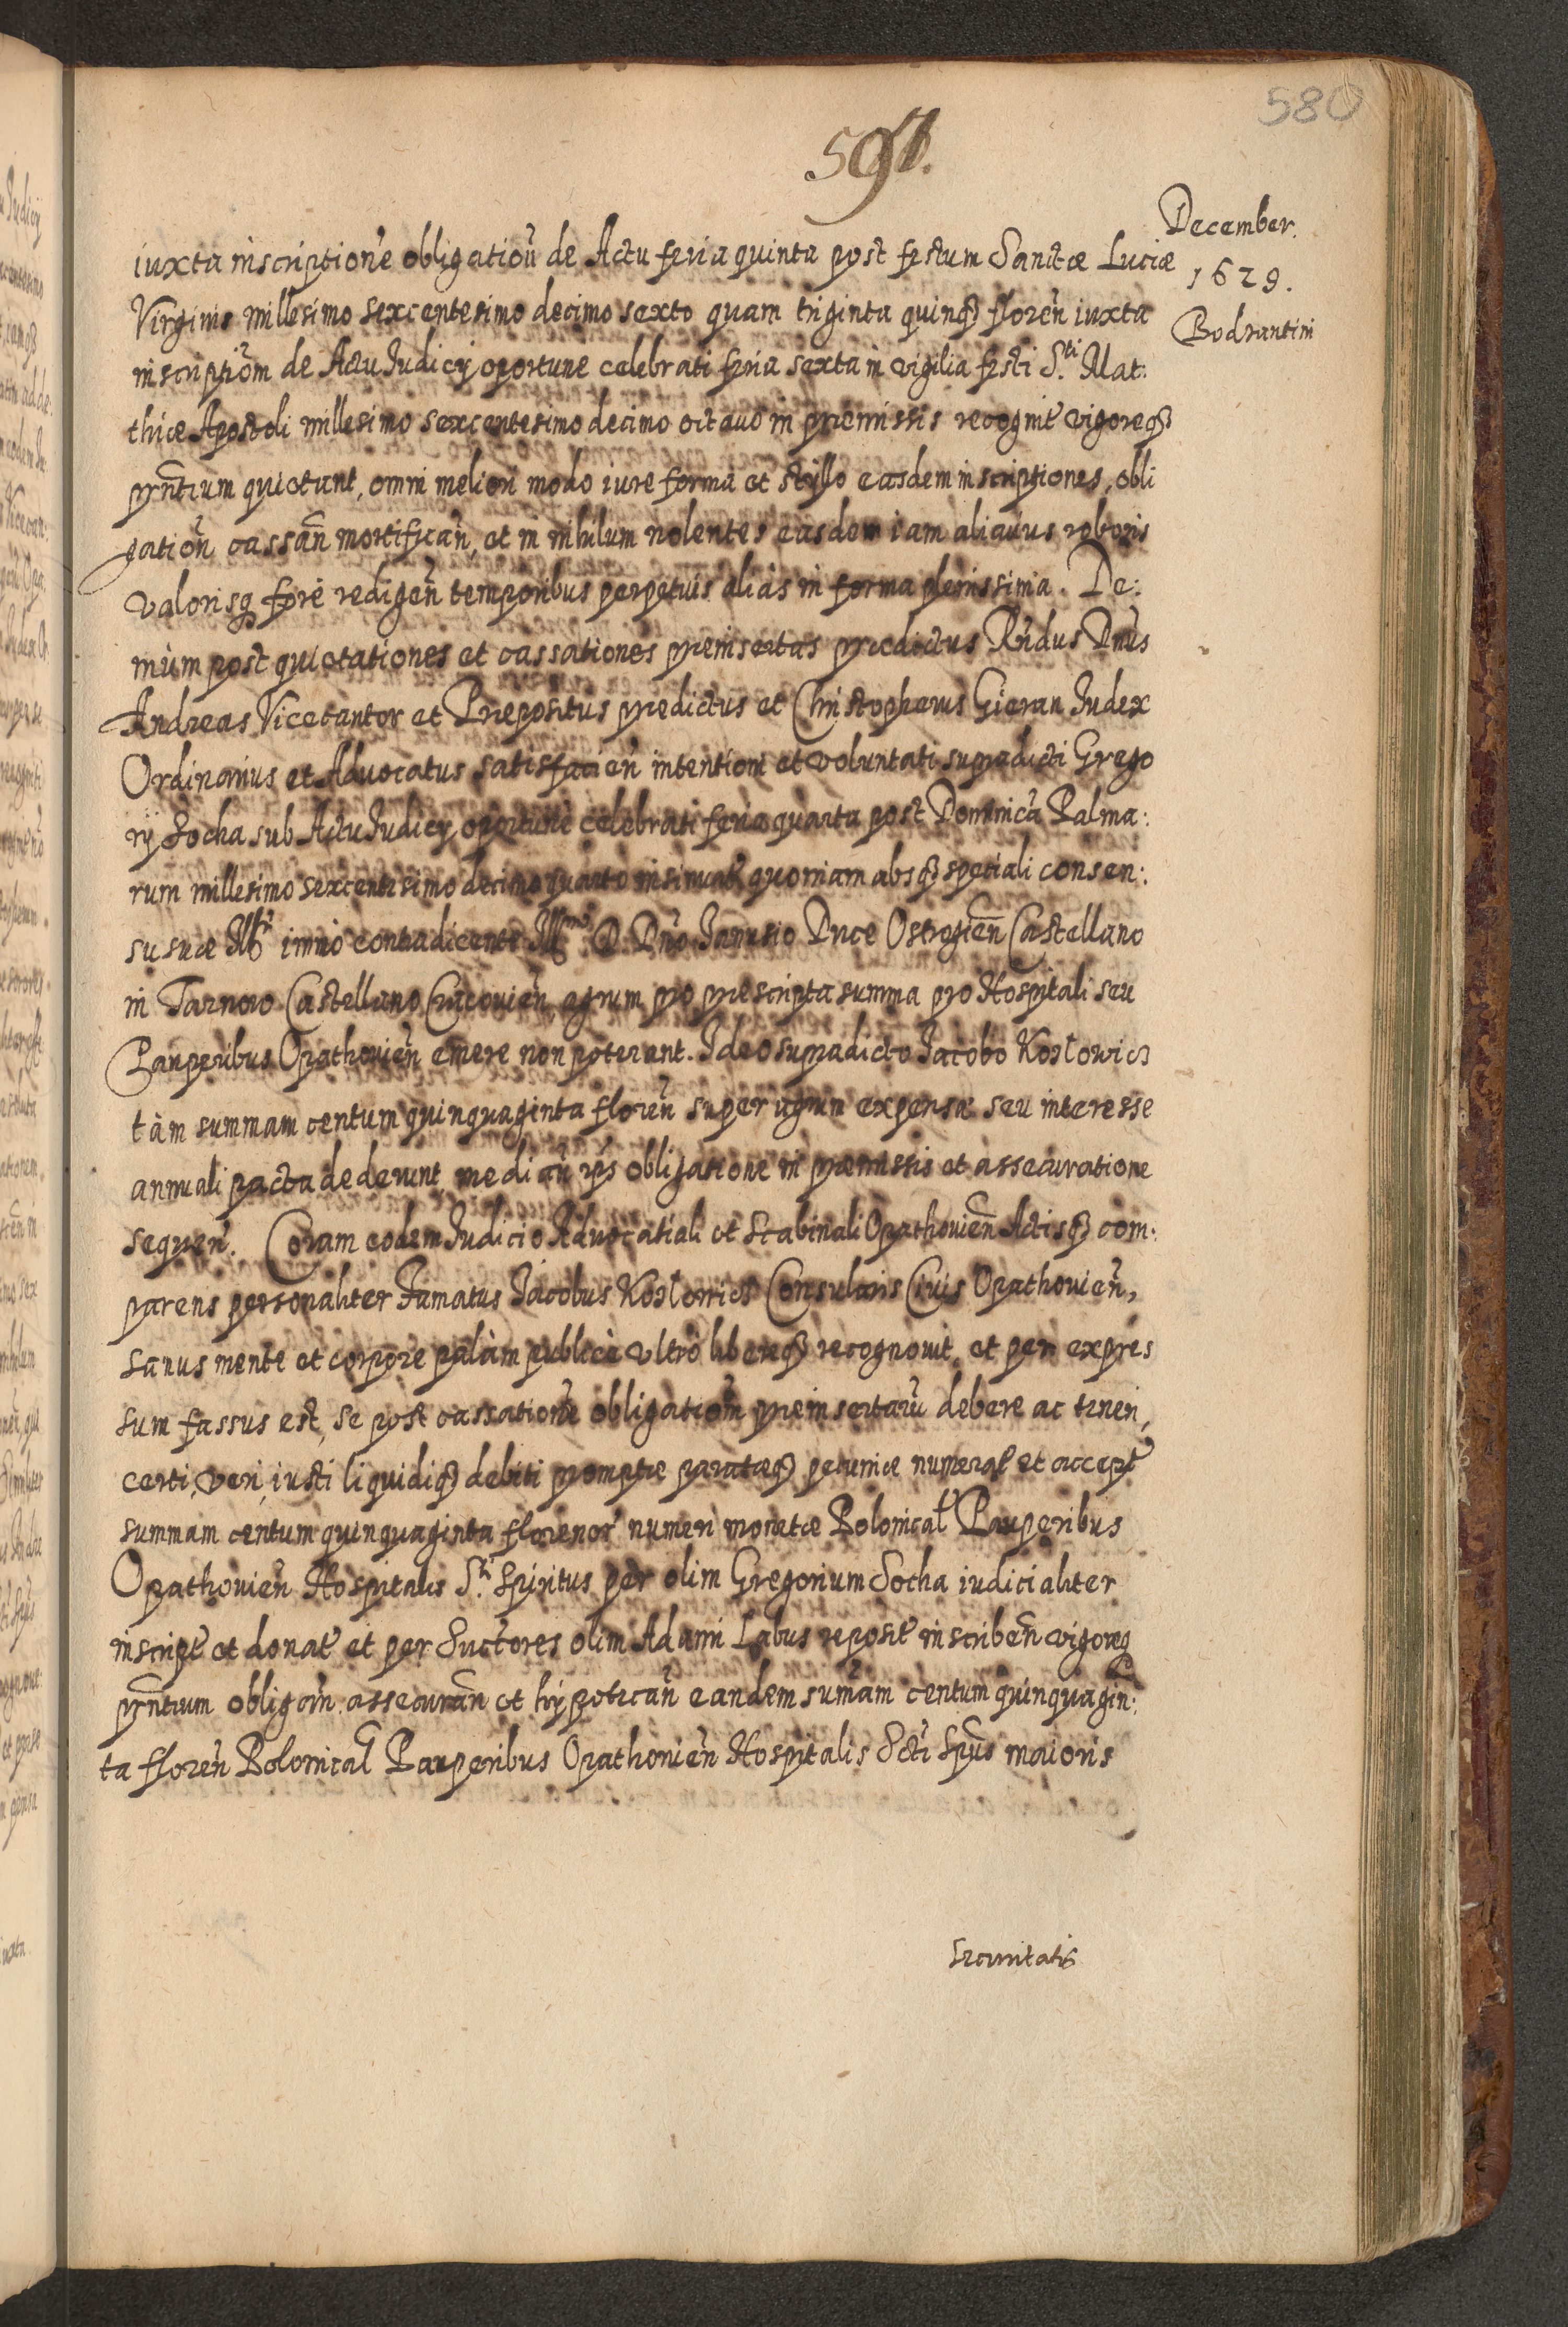 580
597.
December.
1629.
Bodzantini
iuxta inscriptione obligatioñ de Actu feria quinta post festum Sanctæ Luciæ
Virginis millesimo sexcentesimo decimo sexto quam triginta quinqꝫ floreñ iuxta
inscriptiom̃ de Actu Judicij oportune celebrati feria sexta in vigilia festi S.ti Mat:
thiæ Apostoli millesimo sexcentesimo decimo octavo in præmissis recognit vigoreqꝫ
pñtium quietant, omni meliori modo iure forma et stÿlo easdem inscriptiones, obli
gatioñ cassañ mortificañ, et in nihilum nolentes easdem iam alicuius roboris
valorisqꝫ fore redigeñ temporibus perpetuis aliàs in forma plenissima. De:
mùm post quietationes et cassationes præinsertas prædictus Rñdus Dñus
Andreas Vicecantor et Præpositus prædictus et Christopherus Gieran Judex
Ordinarius et Advocatus satisfacieñ intentioni et voluntati supradicti Grego
rij Socha sub Actu Judicij oportunè celebrati feria quarta post Dominicã Palma:
rum millesimo sexcentesimo decimo quarto insinuat, quoniam absqꝫ speciali consen:
su suæ imò contradicente Illmo D. Dño Janusio Duce Ostrogieñ Castellano
in Tarnow Castellano Cracovieñ, agrum pro præscripta summa pro Hospitali seu
Pauperibus Opathovieñ emere non poterant. Ideo supradicto Jacobo Kozlowicz
tàm summam centum quinquaginta floreñ super agrum expensæ seu interesse
annuali pacta dederunt mediañ ips obligatione in præmissis et assecuratione
sequeñ. Coram eodem Judicio Advocatiali et Scabinali Opathovieñ Actisqꝫ com:
parens personaliter Famatus Jacobus Kozlowicz Consularis Civis Opathovieñ,
sanus mente et corpore palàm publicè vltrò libereqꝫ recognovit, et per expres
sum fassus est, se post cassatione obligatiom̃ præinsertarũ debere ac teneri,
certi, veri, iusti liquidiqꝫ debiti promptæ paratæqꝫ pecuniæ numerat et accept
summam centum quinquaginta florenor numeri monetæ Polonical Pauperibus
Opathovieñ Hospitalis S.ti Spiritus per olim Gregorium Socha iudicialiter
inscript et donat et per Suctores olim Adami Labus reposit inscribeñ vigoreqꝫ
pñtium obligañ assecurañ et hÿpotecañ eandem sum̃am centum quinquagin:
ta floreñ Polonical Pauperibus Opathovieñ Hospitalis Scti Spũs maioris
securitatis